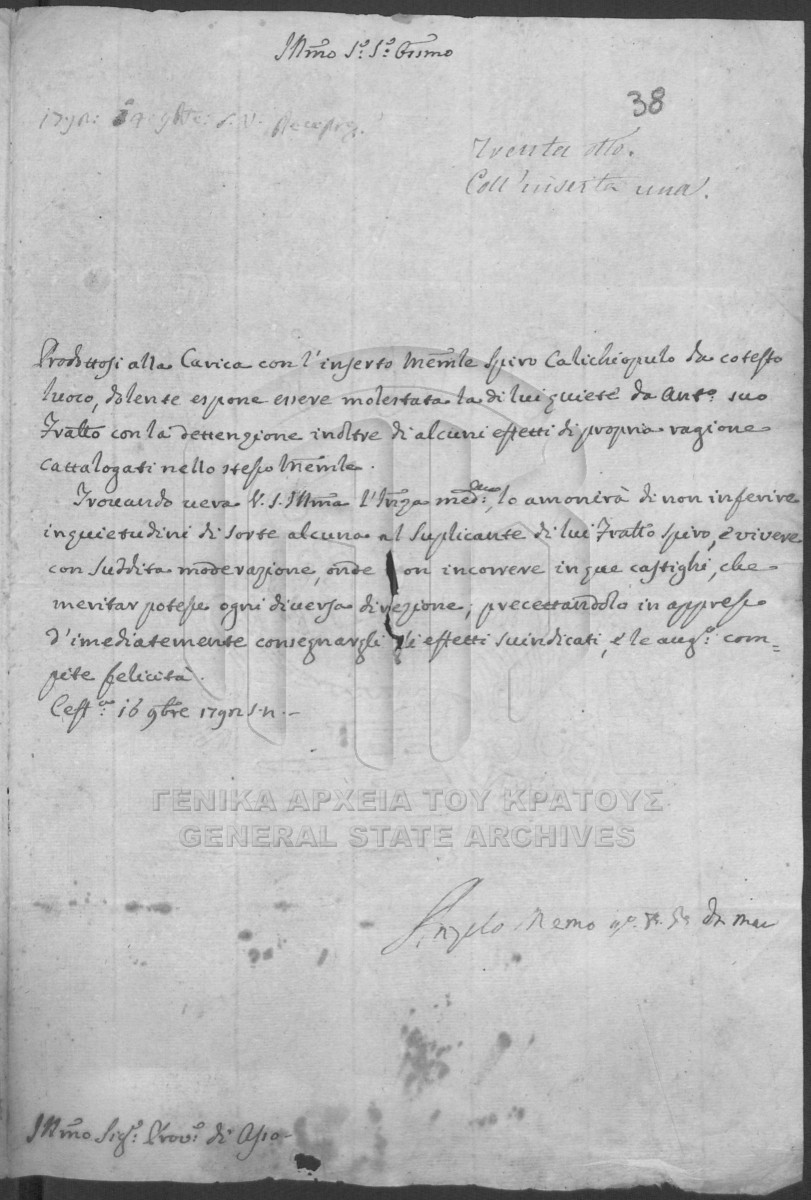 Illmo Sr Sr Ossmo
38
1792: 9bre: S.V.
Trenta otto.
Coll'inserta una.
Prodottosi alla Carica con l'inserto Memle Spiro Calichiopulo da cotesto
luoco, dolente espone essere molestata la di lui quiete da Anto suo
Fratto con la dettenzione inoltre di alcuni effetti di propria ragione
cattalogati nello stesso Memle.
Trovando vera V. S. Illma l'Inza medma: lo amonirà di non inferire
inquietudini di sorte alcuna al Suplicante di lui Fratto Spiro, e vivere
con suddita moderazione, onde on incorrere in que castighi, che
meritar potesse ogni diversa direzione; precettandolo in appresso
d'imediatemente consegnargli gli effetti suindicati, e le augo com=
pite felicità.
Ceffa: 16 9bre 1792 S.N.-
ΓΕΝΙΚΑ ΑΡΧΕΙΑ ΤΟΥ ΚΡΑΤΟΥΣ
GENERAL STATE ARCHIVES
Angelo Memo
Illmo Sigr: Provr: di Asso-